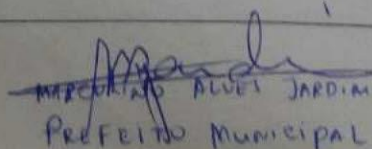 MARCORINO ALVES JARDIM
PREFEITO MUNICIPAL